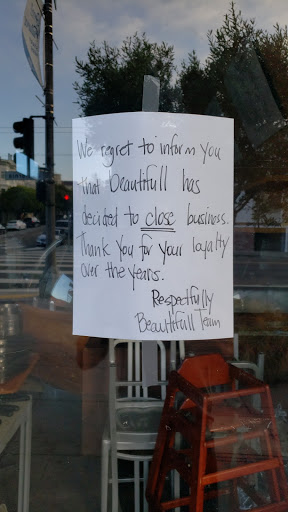 We regret to inform you
that Beautifull has
decided to close business.
Thank you for your loyalty
over the years.
Respectfully
Beautifull Team